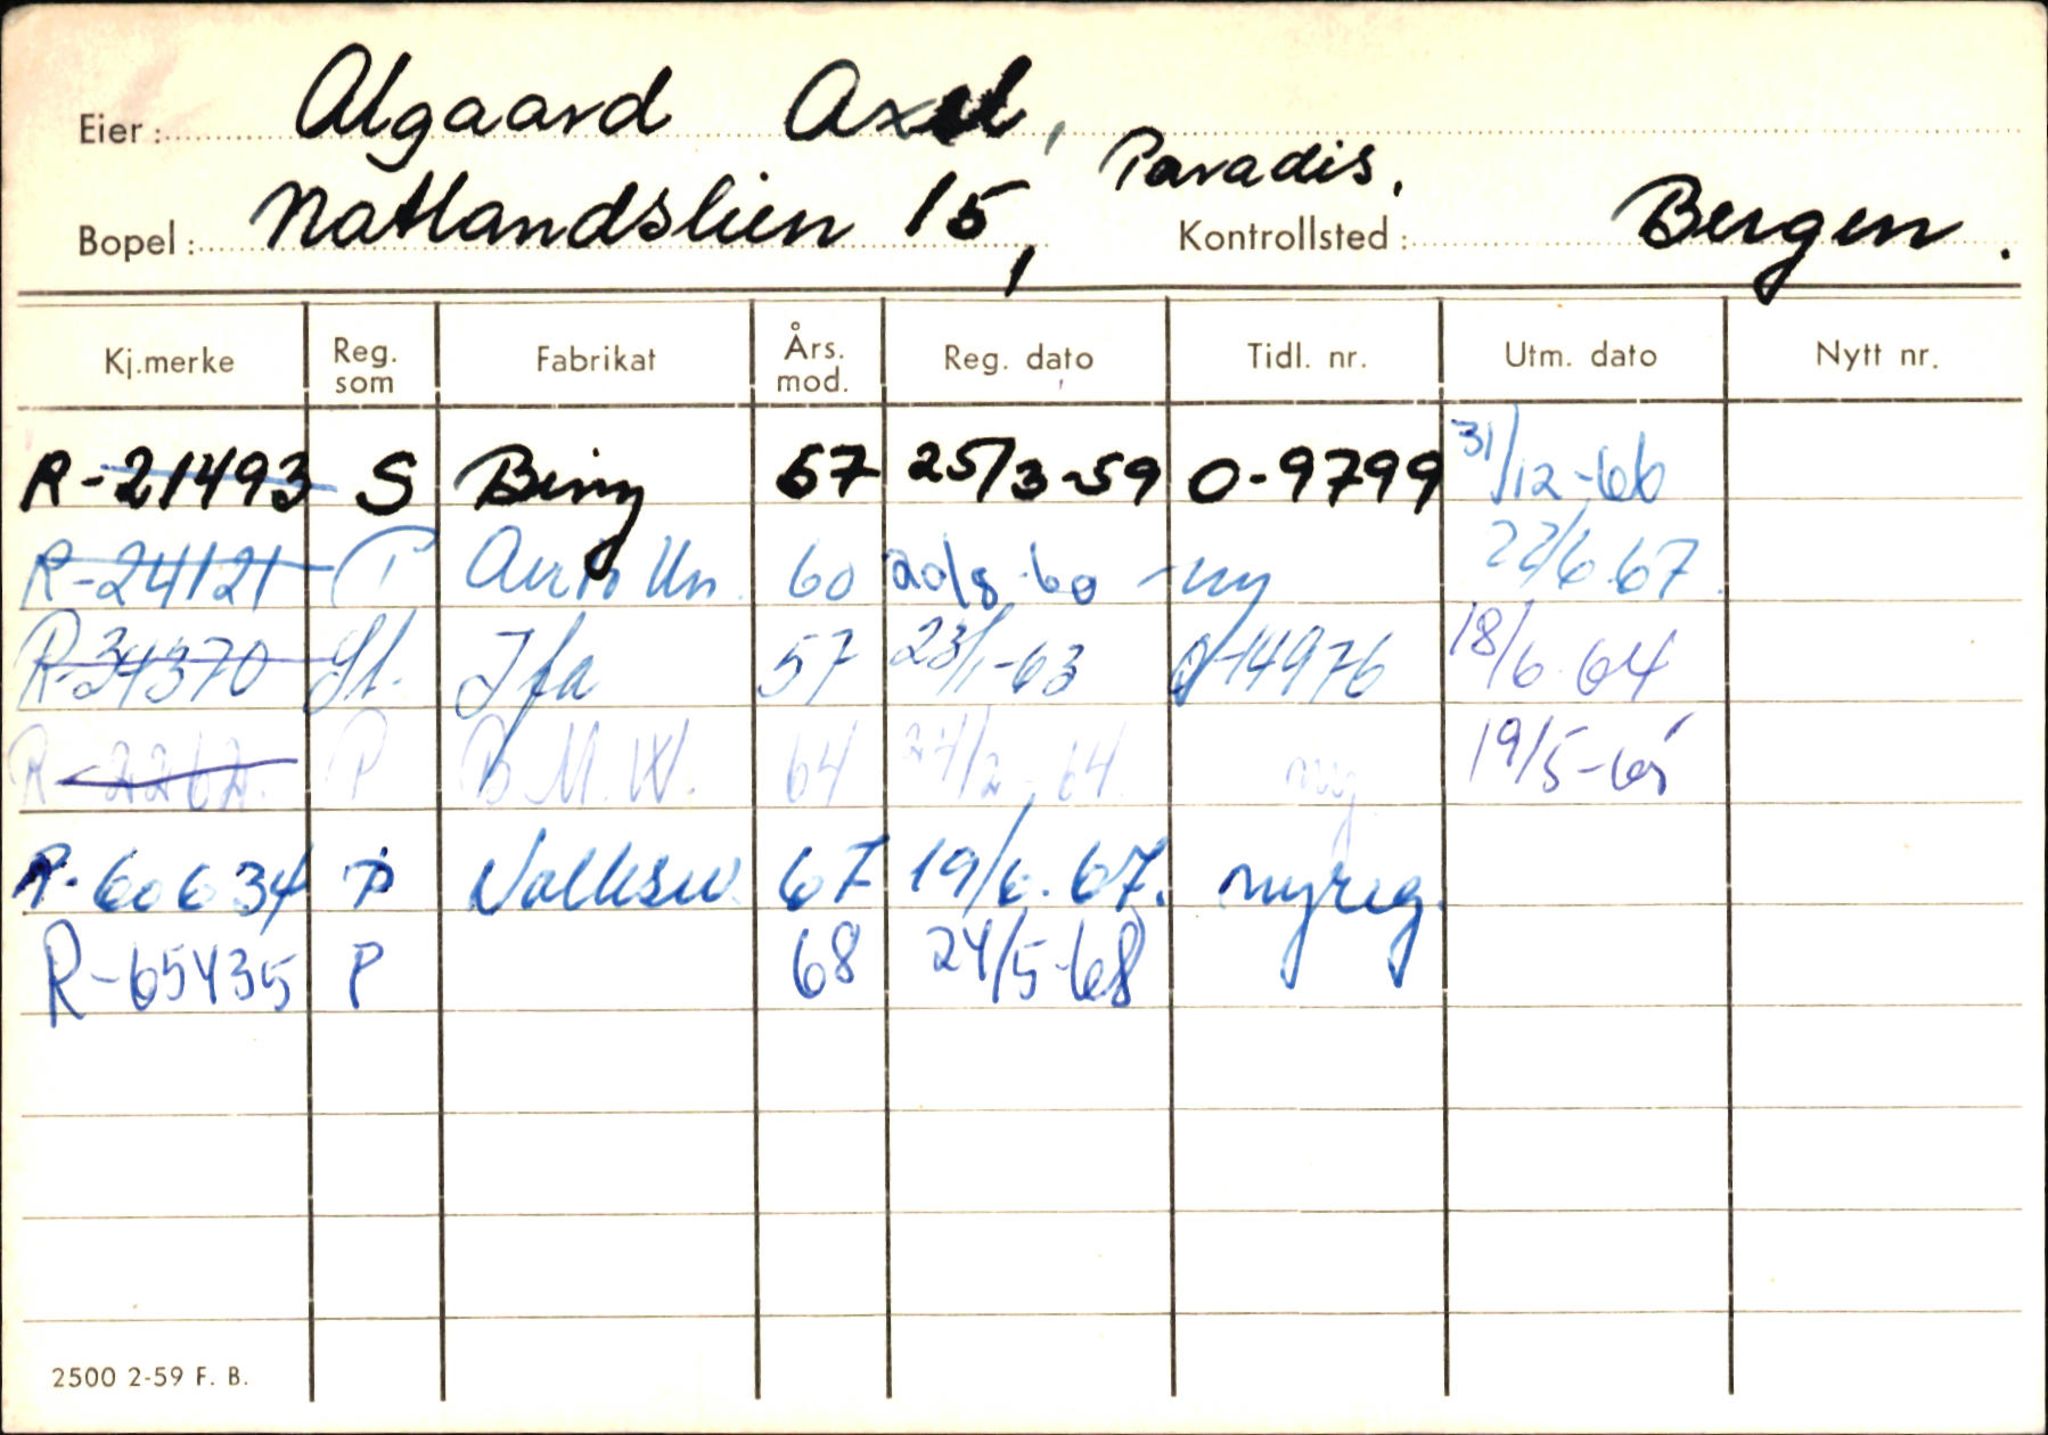 Eier: Algaard Axel,
Paradis.
Bopel: Natlandslien 15, Kontrollsted: Bergen.
Kj.merke Reg. som Fabrikat Års. mod. Reg. dato Tidl. nr. Utm. dato Nytt nr.
R-21493 S 57 25/3-59 O-9799 31/12-66
R-24121 P Auto Un. 60 20/8-60 ny 22/6.67.
R-34370 Ifa 57 23/1-63 14976 18/6.64
R-2262. P B.M.W. 64 24/2-64. ny 19/5-65
R.60634 P Volksw. 67 19/6.67. nyreg.
R-65435 P 68 24/5-68
2500 2-59 F. B.